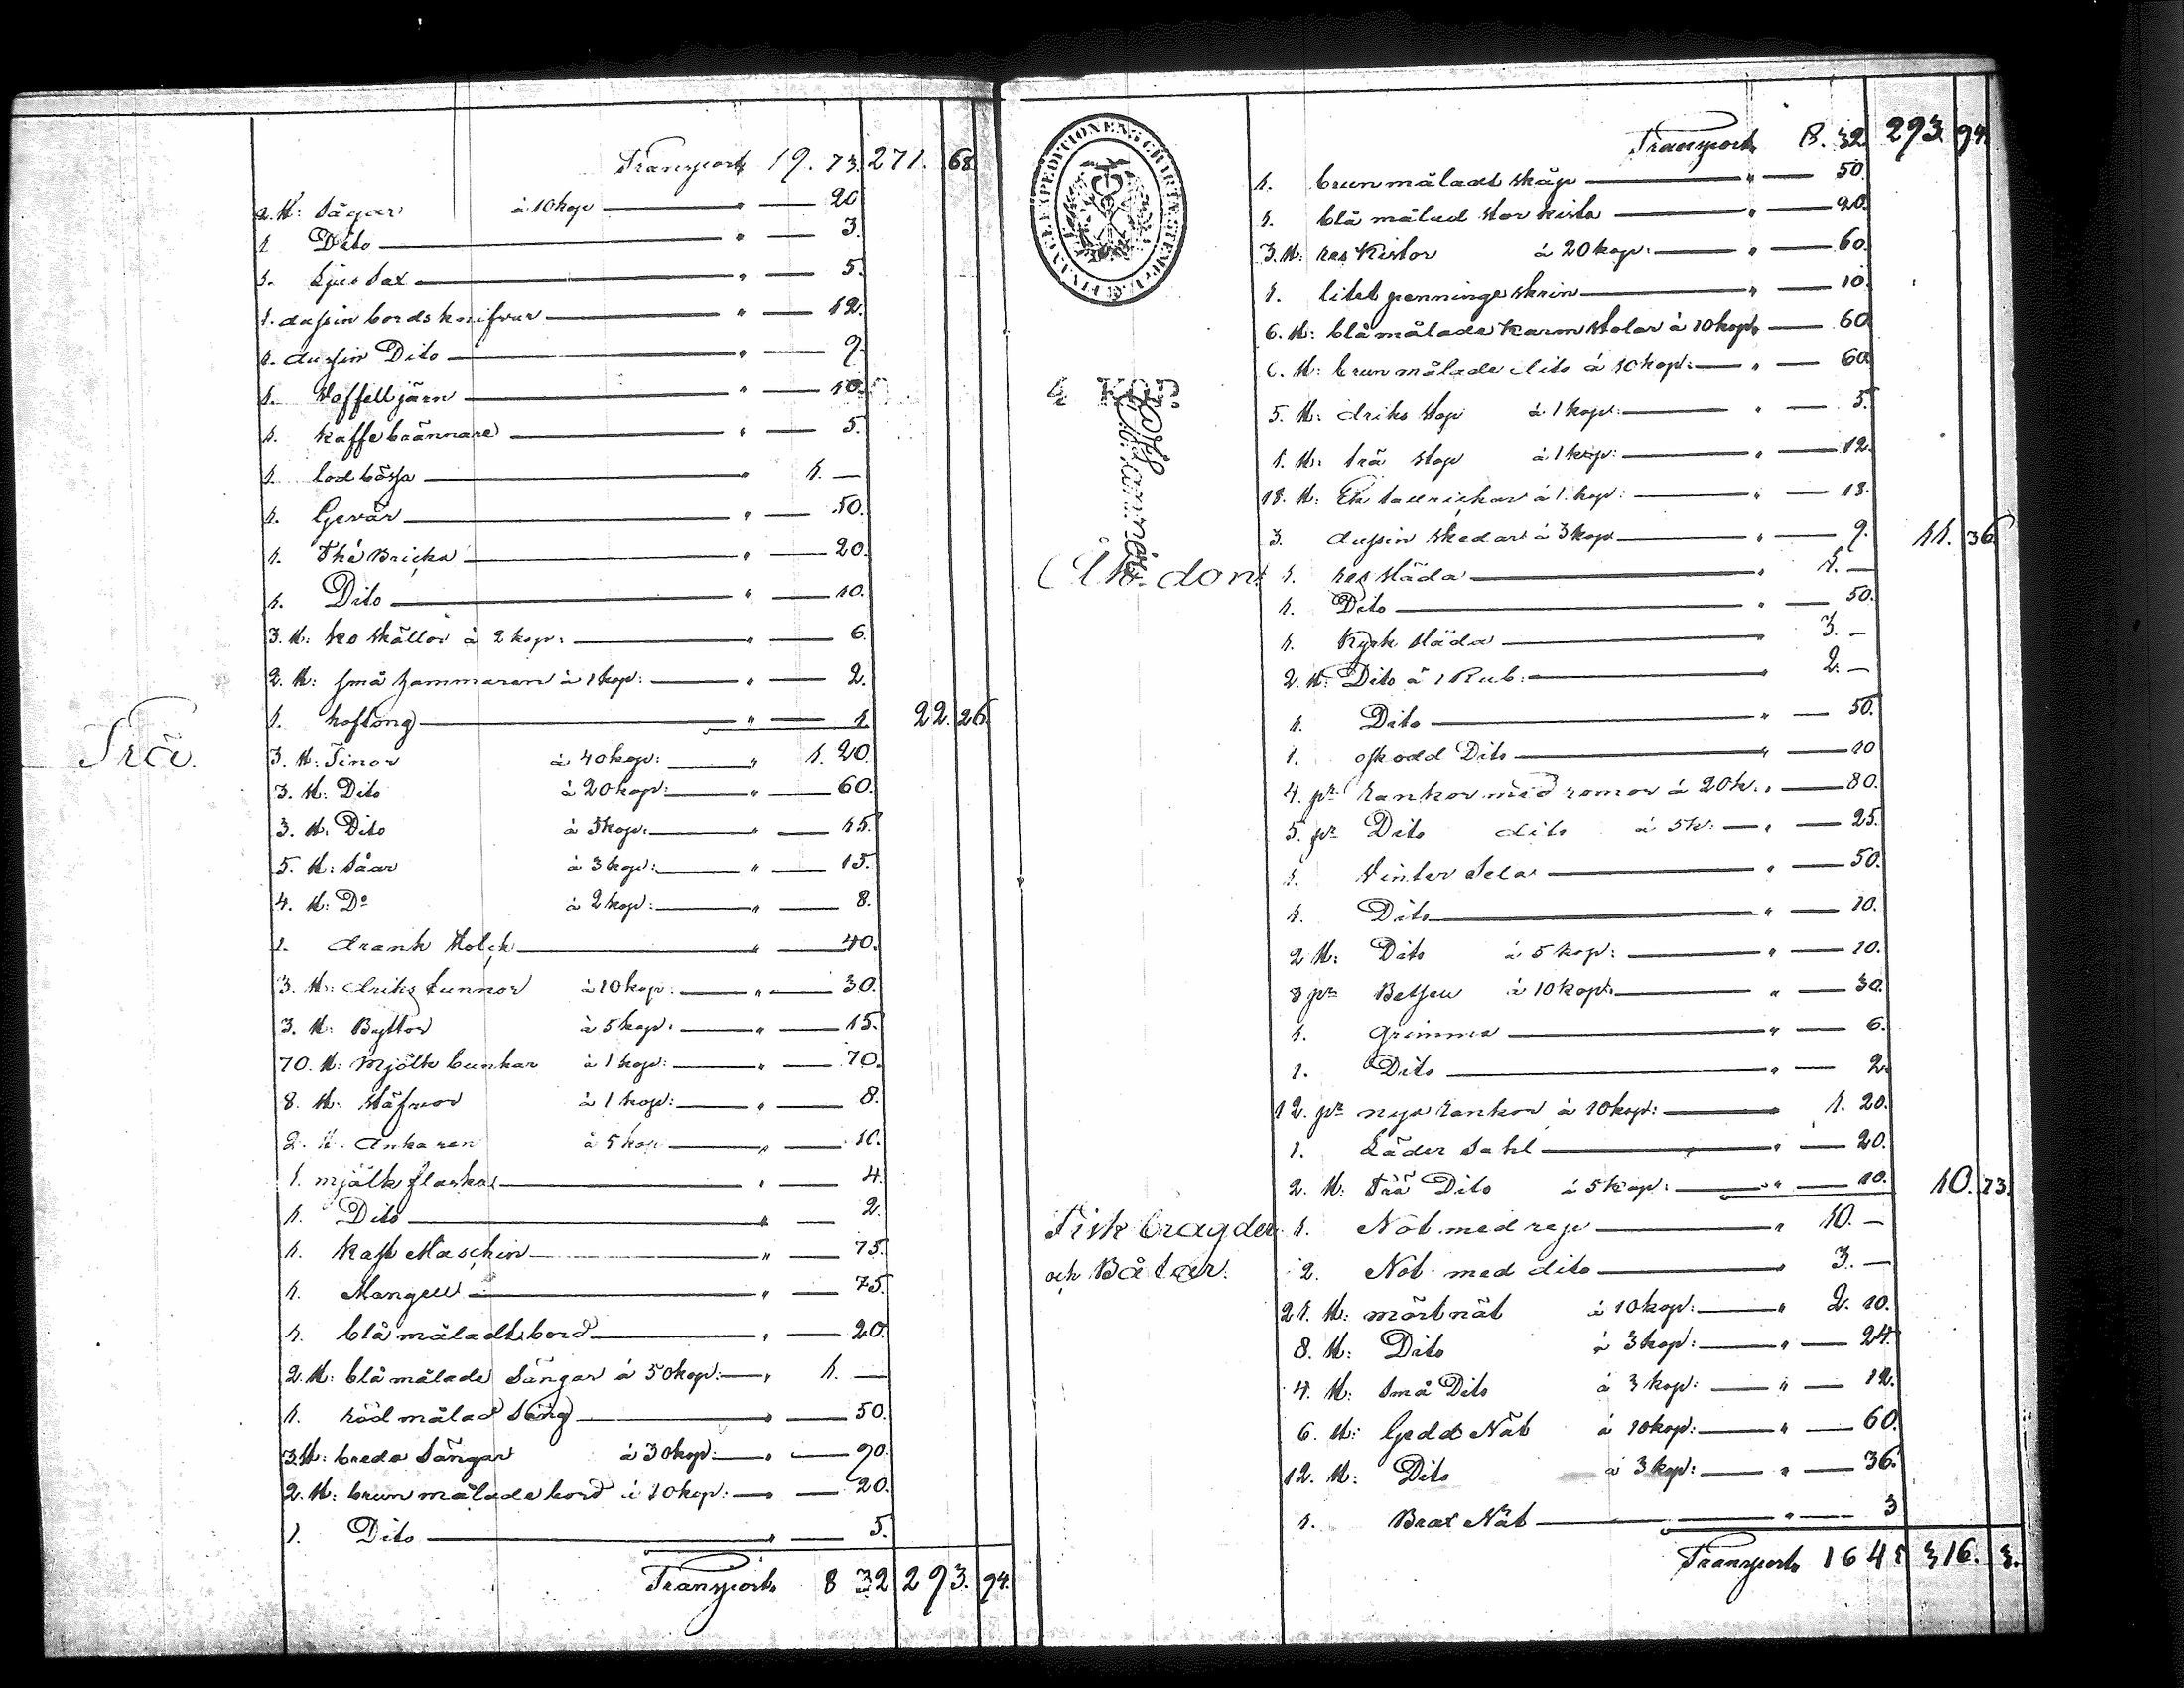 Transport 19. 73. 271. 68
2. St: Sågar à 10 kop " 20
1. Dito " 3.
1. Ljus Sax " 5.
1. dussin bords knifvar " 12.
1. dussin Dito " 9.
1. Voffelljärn " 10.
1. Kaffe brännare " 5.
1. lod bössa " 1. —
1. Gevär " 50.
1. Thé Bricka " 20.
1. Dito " 10.
3. St: ko skällor à 2 kop: " 6.
2. St: små hammaren à 1 kop: " 2.
1. hoftong " 1 22. 26.
Trä.
3. St: Tinor à 40 kop: " 1. 20.
3. St: Dito à 20 kop: " 60.
3. St: Dito à 5 kop: " 15.
5. St: Såar à 3 kop: " 15.
4. St: Do à 2 kop: " 8.
1. drank Holck " 40.
3. St: driks tunnor à 10 kop: " 30.
3. St: Byttor à 5 kop: " 15.
70. St: Mjölk bunkar à 1 kop: " 70.
8. St: stäfvor à 1 kop: " 8.
2. St. Ankaren à 5 kop " 10.
1. mjölk flaska " 4.
1. Dito " 2.
1. Kast Maschin " 75.
1. Mangell " 75.
1. blå måladt bord " 20.
2. St: blå målade Sängar à 50 kop: " 1. —
1. röd målad Säng " 50.
3. St: breda Sängar à 30 kop: " 90.
2. St: brun målade bord à 10 kop: " 20.
1. Dito " 5.
Transport 8 32 293. 94.
FINANCE EXPEDITIONENS CHARTÆ STEMPEL
4 KOP.
Transport 8. 32 293. 94.
1. brun måladt skåp " 50.
1. blå målad stor kista " 20.
3. St: res Kistor à 20 kop: " 60.
1. litet penninge skrin " 10.
6. St: blå målade Karm stolar à 10 kop: 60
6. St: brun målade dito à 10 kop: " 60.
5. St: driks stop à 1 kop: " 5.
1. St: trä stop à 1 kop: " 12.
18. St: Trä Tallrickar à 1. kop: " 18.
3. dussin skedar à 3 kop " 9. 11. 36.
Åk don.
1. res släda " 1. —
1. Dito " 50.
1. Kyrk släda " 3. —
2. St: Dito à 1 Rub: " 2. —
1. Dito " 50.
1. oskodd Dito " 10
4. pr Rankor med remor à 20 k: " 80.
5. pr Dito dito à 5 k: " 25.
1. Vinter Sela " 50.
1. Dito " 10.
2 St: Dito à 5 kop: " 10.
3 pr Betseu à 10 kop: " 30.
1. grimma " 6.
1. Dito " 2.
12. pr nya Rankor à 10 kop: " 1. 20.
1. Läder Sahl " 20.
2. St: Trä Dito à 5 kop: " 10. 10. 73.
Fisk bragder
och Båtar.
1. Not med rep " 10. —
2. Not med dito " 3. —
21. St: mört nät à 10 kop: " 2. 10.
8. St: Dito à 3 kop: " 24.
4. St: små Dito à 3 kop: " 12.
6. St: Gedd Nät à 10 kop: " 60.
12. St: Dito à 3 kop: " 36.
1. Brax Nät " 3
Transport 16 45 316. 3.